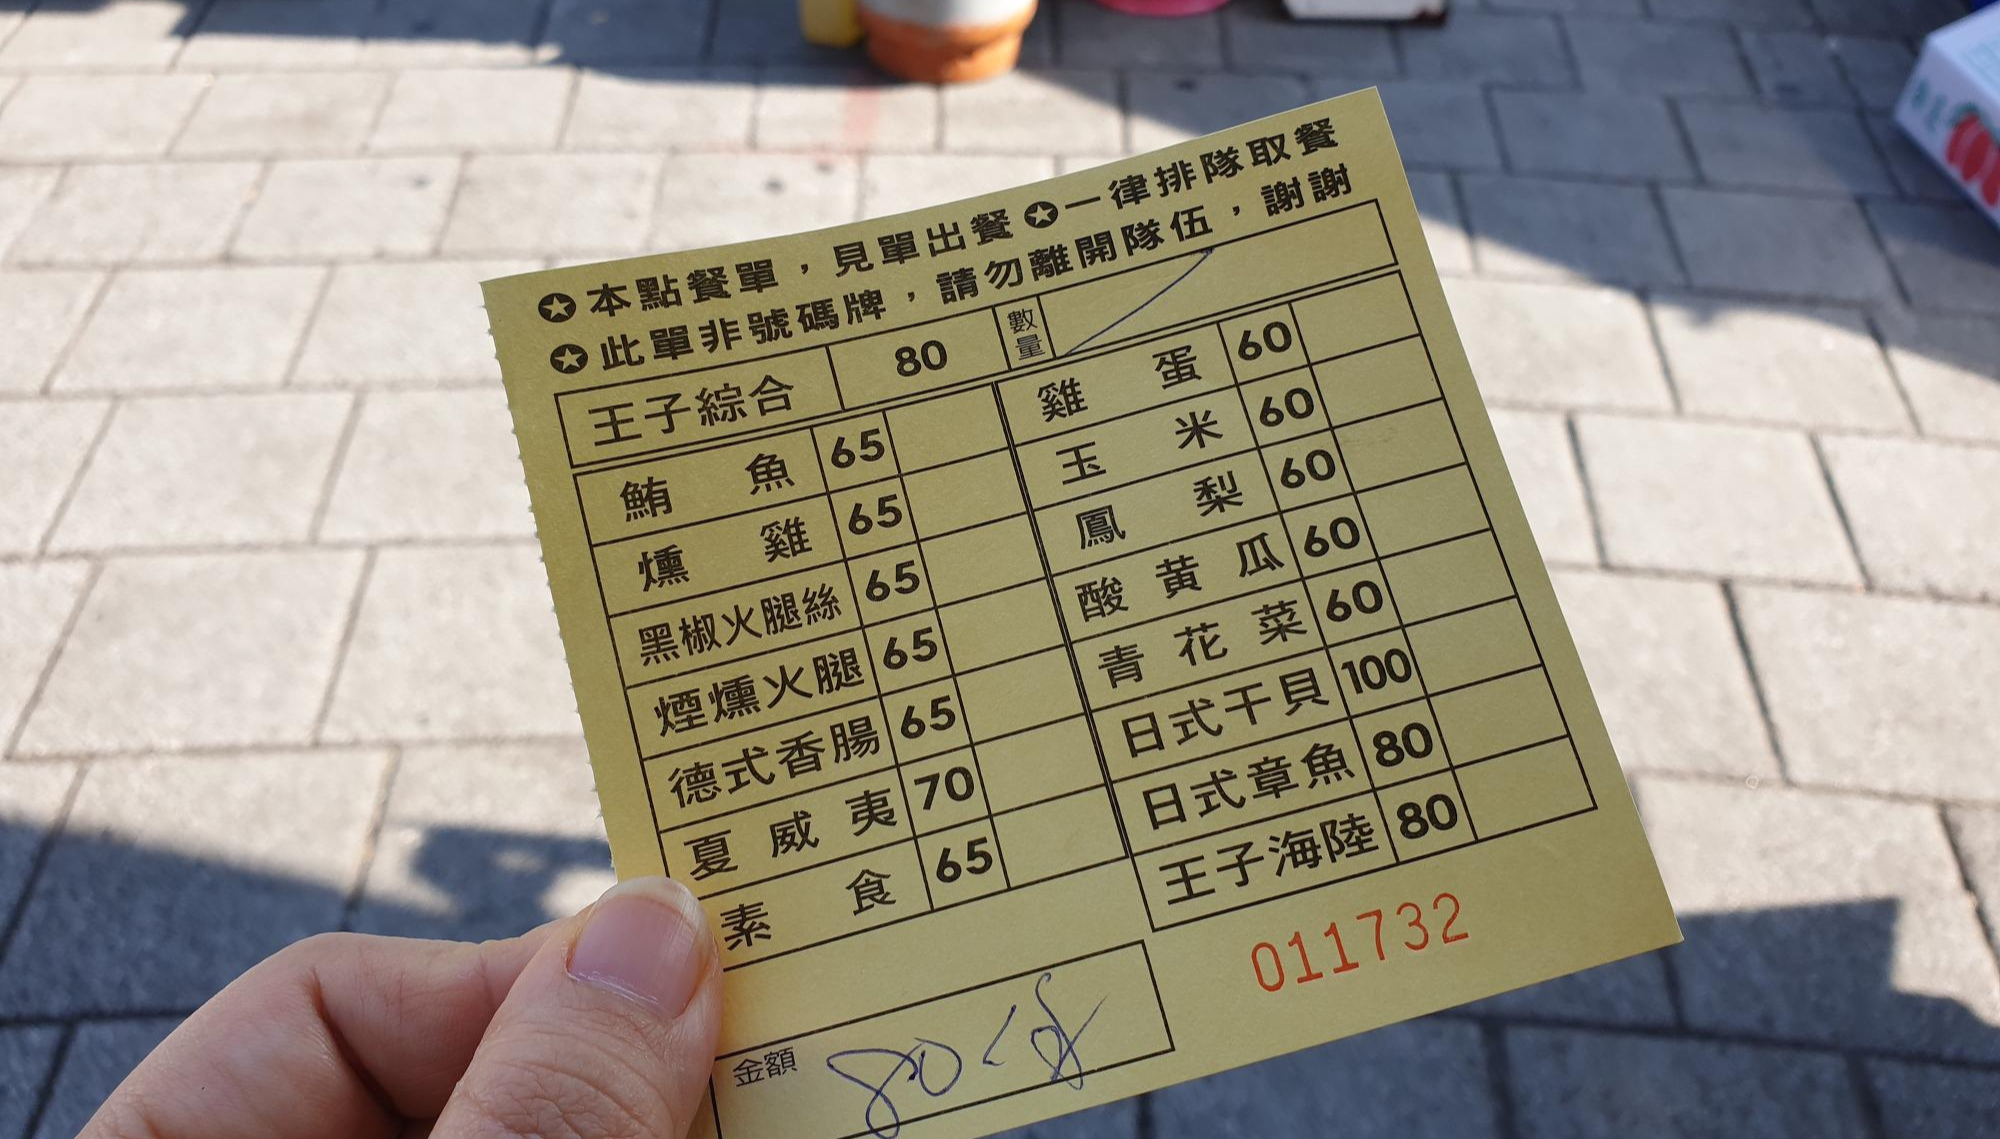 ✪本點餐單，見單出餐✪一律排隊取餐
✪此單非號碼牌，請勿離開隊伍，謝謝
王子綜合 80 數量
鮪魚 65
燻雞 65
黑椒火腿絲 65
煙燻火腿 65
德式香腸 65
夏威夷 70
素食 65
雞蛋 60
玉米 60
鳳梨 60
酸黃瓜 60
青花菜 60
日式干貝 100
日式章魚 80
王子海陸 80
011732
金額 80